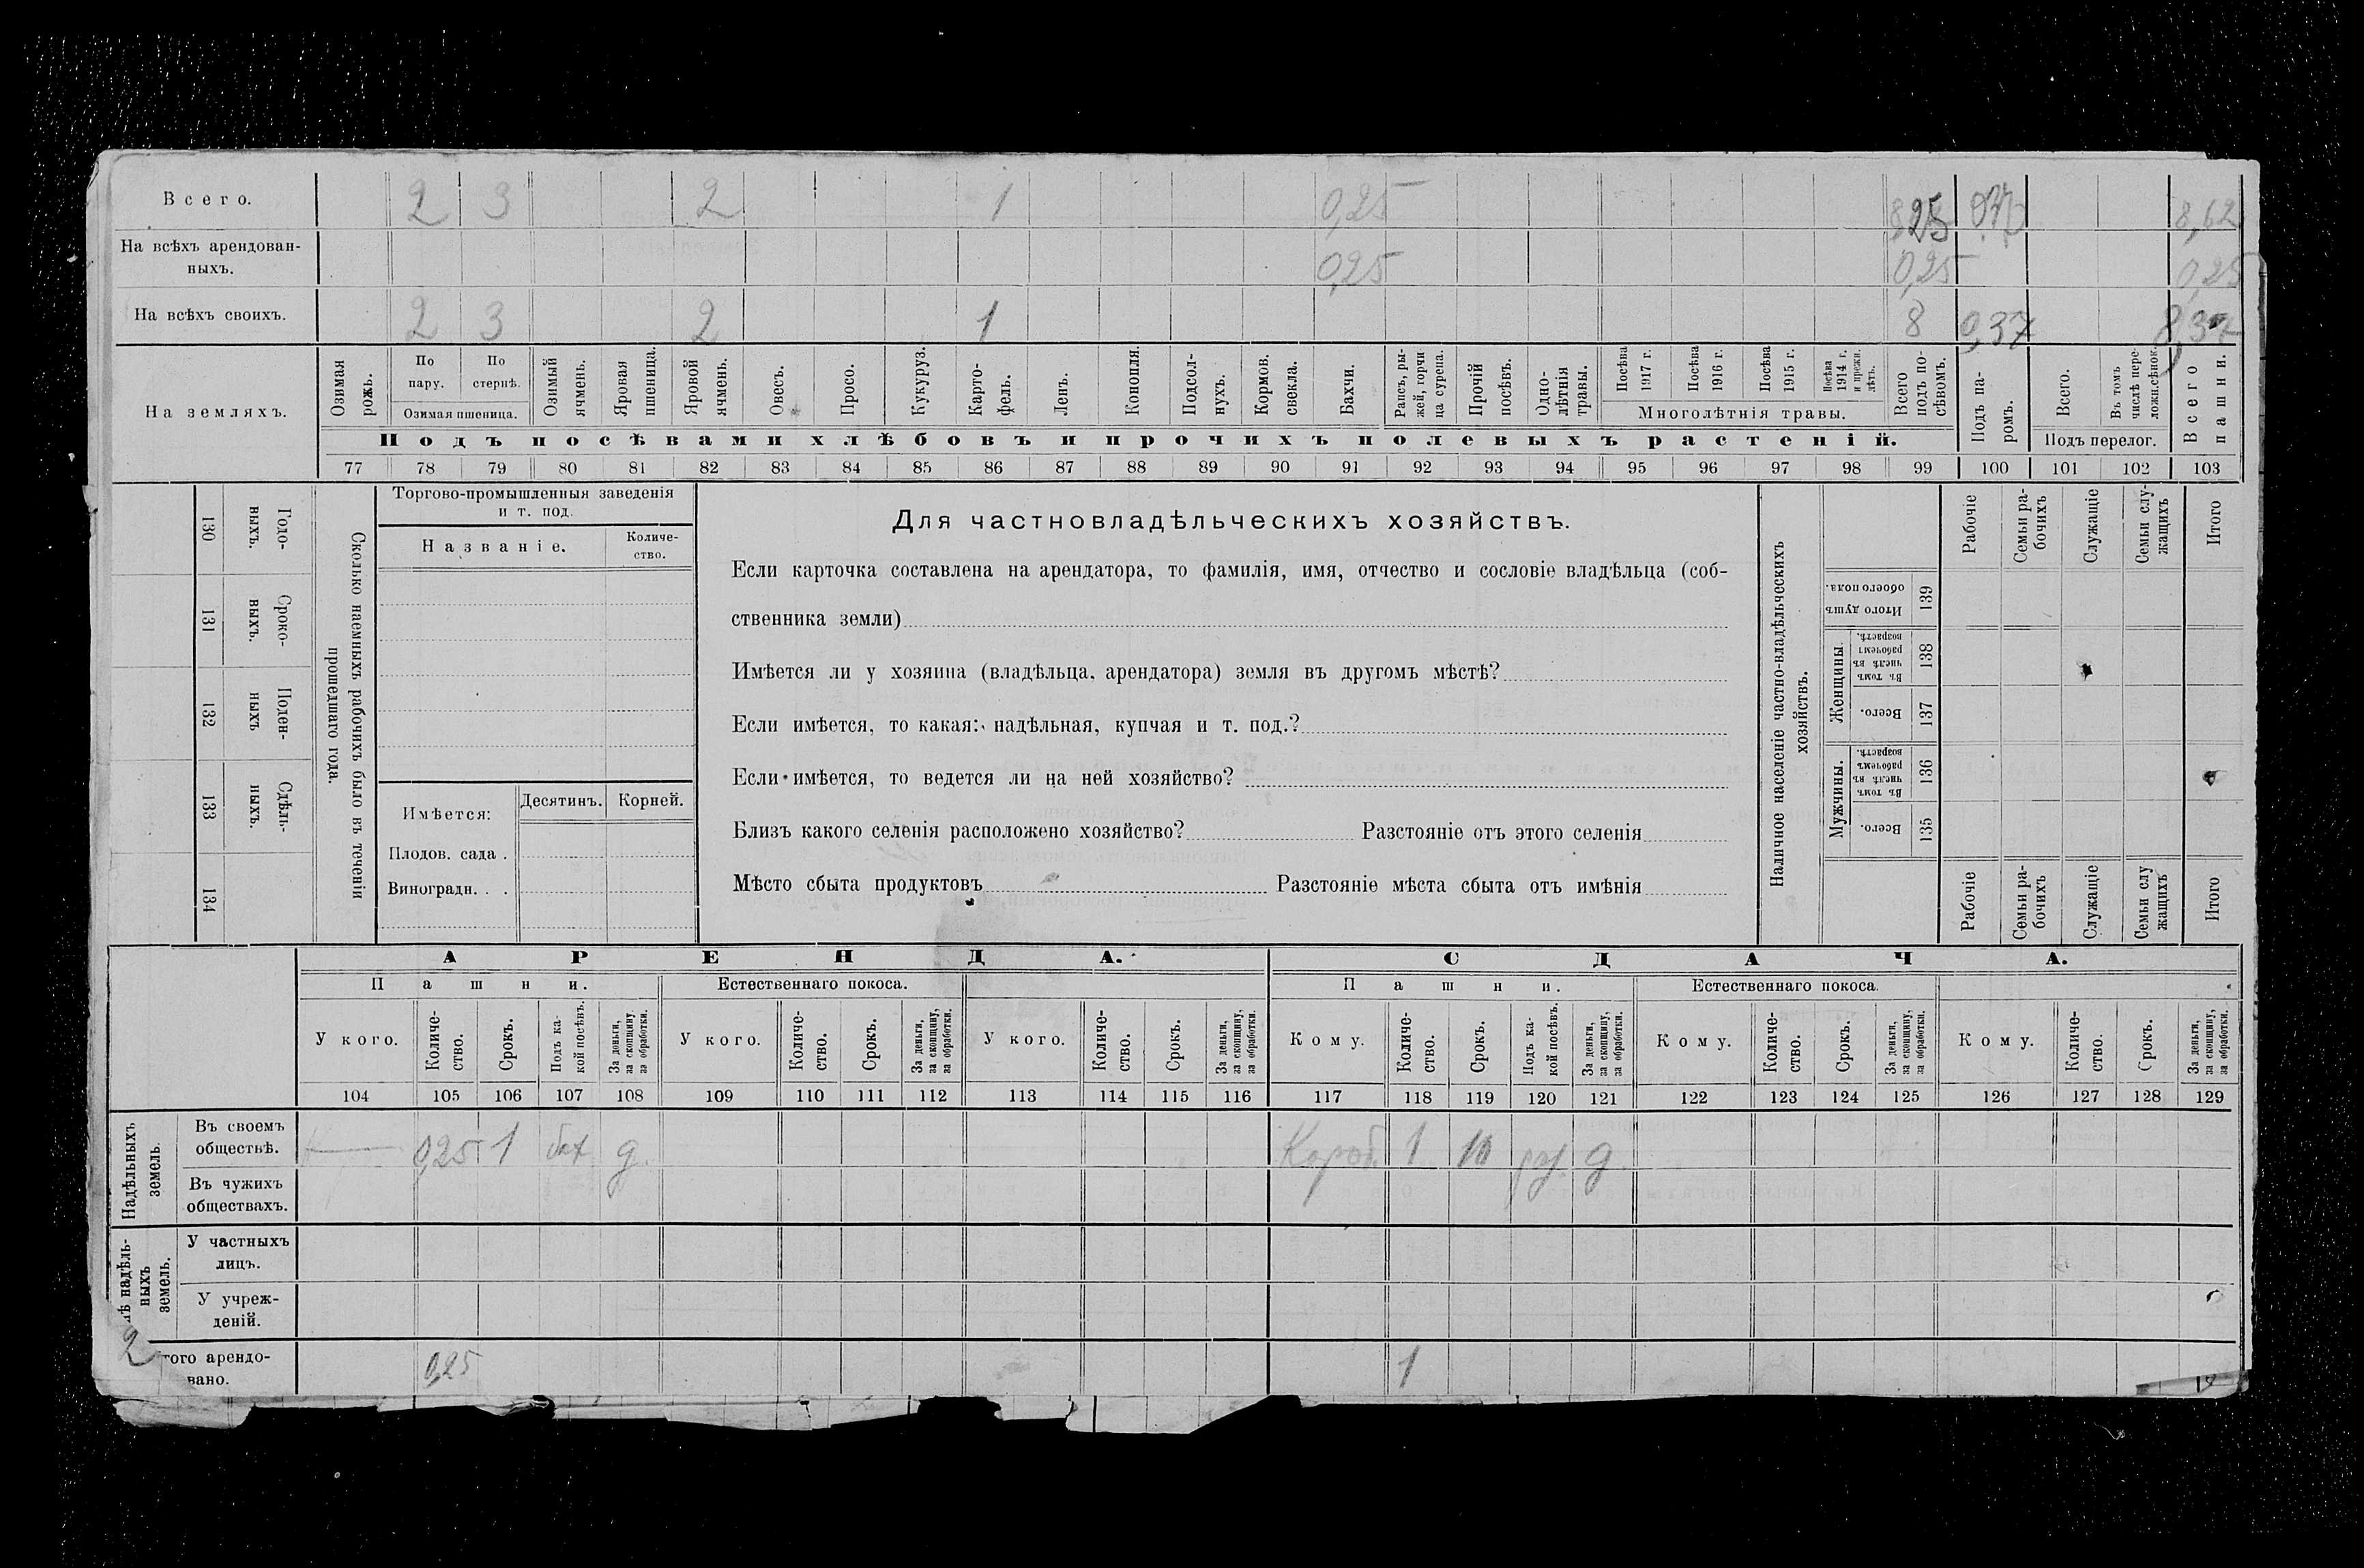 Всего. 2 3 2 1 0,25 8,25 8,62
На всѣхъ арендован-
ныхъ. 0,25 0,25 0,25
На всѣхъ своихъ. 2 3 2 1 8 0,37 8,37
На земляхъ.
Озимая рожь.
По пару.
По стернѣ.
Озимая пшеница.
Озимый ячмень.
Яровая пшеница.
Яровой ячмень.
Овесъ.
Просо.
Кукуруз.
Карто-
фель.
Ленъ.
Конопля.
Подсол-
нухъ.
Кормов. свекла.
Бахчи.
Рапсъ, ры-
жей, горчи
ца сурепа.
Прочій посѣвъ.
Одно-
лѣтнія травы.
Посѣва 1917 г.
Посѣва 1916 г.
Посѣва 1915 г.
Посѣва 1914 г. и прежн. лѣтъ.
Многолѣтнія травы.
Всего подъ по-
сѣвомъ.
Подъ па-
ромъ.
Всего.
Въ томъ числѣ пере-
ложн.сѣнок.
Подъ перелог.
Всего пашни.
Подъ посѣвами хлѣбовъ и прочихъ полевыхъ растеній.
77 78 79 80 81 82 83 84 85 86 87 88 89 90 91 92 93 94 95 96 97 98 99 100 101 102 103
Сколько наемныхъ рабочихъ было въ теченіи
прошедшаго года.
Годо-
ныхъ.
130
Сроко-
ныхъ.
131
Поден-
ныхъ
132
Сдѣль-
ныхъ.
133
134
Торгово-промышленныя заведенія
и т. под.
Названіе.
Количе-
ство.
Имѣется:
Десятинъ.
Корней.
Плодов. сада .
Виноградн. . .
Для частновладѣльческихъ хозяйствъ.
Если карточка составлена на арендатора, то фамилія, имя, отчество и сословіе владѣльца (соб-
ственника земли)
Имѣется ли у хозяина (владѣльца, арендатора) земля въ другомъ мѣстѣ?
Если имѣется, то какая: надѣльная, купчая и т. под.?
Если имѣется, то ведется ли на ней хозяйство?
Близъ какого селенія расположено хозяйство? Разстояніе отъ этого селенія
Мѣсто сбыта продуктовъ Разстояніе мѣста сбыта отъ имѣнія
Наличное населеніе частно-владѣльческихъ
хозяйствъ.
Рабочіе
Семьи ра-
бочихъ
Служащіе
Семьи слу-
жащихъ
Итого
Итого душъ обоего пола.
139
Женщины.
Въ томъ числѣ въ рабочемъ возрастѣ.
138
Всего.
137
Мужчины.
Въ томъ числѣ въ рабочемъ возрастѣ.
136
Всего.
135
Рабочіе
Семьи ра-
бочихъ
Служащіе
Семьи слу
жащихъ
Итого
АРЕНДА.
СДАЧА.
Пашни.
Естественнаго покоса.
Пашни.
Естественнаго покоса.
У кого.
Количе-
ство.
Срокъ.
Подъ ка-
кой посѣвъ.
За деньги, за скопщину, за обработки.
У кого.
Количе-
ство.
Срокъ.
За деньги, за скопщину, за обработки.
У кого.
Количе-
ство.
Срокъ.
За деньги, за скопщину, за обработки.
Кому.
Количе-
ство.
Срокъ.
Подъ ка-
кой посѣвъ.
За деньги, за скопщину, за обработки.
Кому.
Количе-
ство.
Срокъ.
За деньги, за скопщину, за обработки.
Кому.
Количе-
ство.
Срокъ.
За деньги, за скопщину, за обработки.
104 105 106 107 108 109 110 111 112 113 114 115 116 117 118 119 120 121 122 123 124 125 126 127 128 129
Надѣльныхъ
земель.
Въ своемъ
обществѣ. 0,25 1 бах д. 1 10 д.
Въ чужихъ
обществахъ.
надѣль-
ныхъ
земель.
У частныхъ
лицъ.
У учреж-
деній.
2
того арендо-
вано. 0,25 1